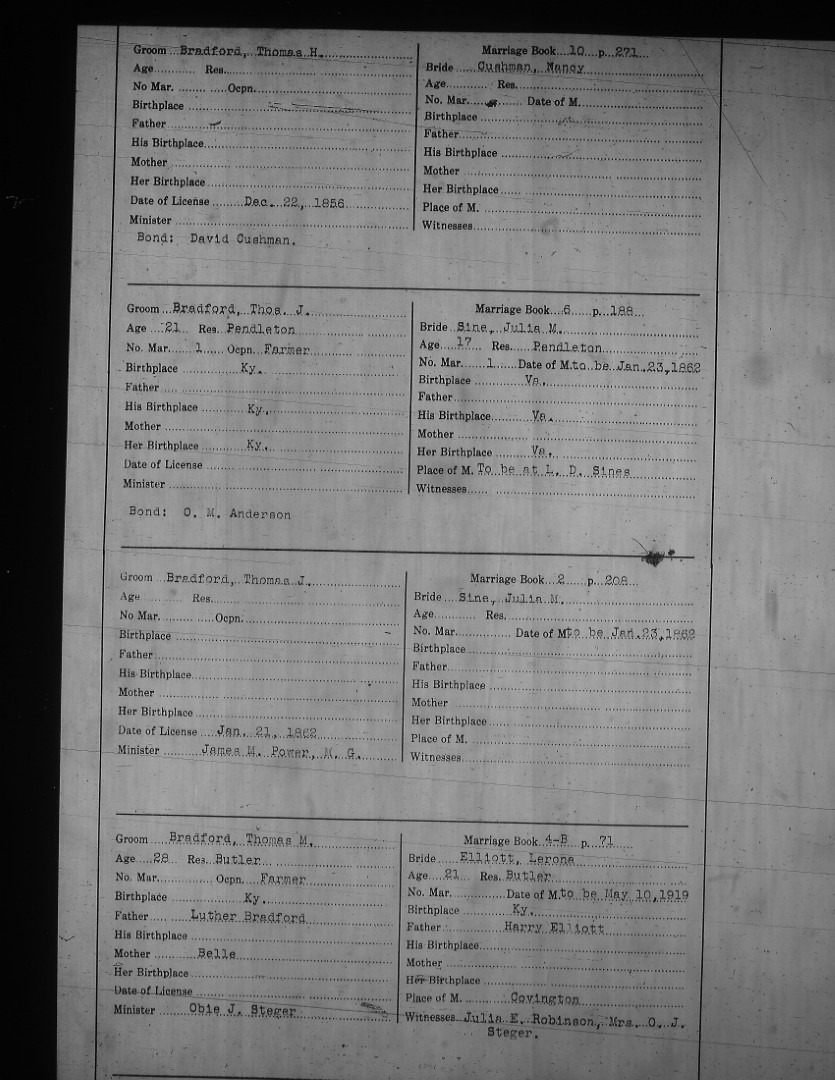 Groom Bradford, Thomas H.
Age Res.
No Mar. Ocpn.
Birthplace
Father
His Birthplace
Mother
Her Birthplace
Date of License Dec. 22, 1856
Minister
Bond: David Cushman.
Marriage Book 10 p. 271
Bride Cushman, Nancy
Age Res.
No. Mar. Date of M.
Birthplace
Father
His Birthplace
Mother
Her Birthplace
Place of M.
Witnesses
Groom Bradford, Thos. J.
Age 21 Res. Pendleton
No. Mar. 1 Ocpn. Farmer
Birthplace Ky.
Father
His Birthplace Ky.
Mother
Her Birthplace Ky.
Date of License
Minister
Bond: O. M. Anderson
Marriage Book 6 p. 188
Bride Sine, Julia M.
Age 17 Res. Pendleton
No. Mar. 1 Date of M. to be Jan. 23, 1862
Birthplace Va.
Father
His Birthplace Va.
Mother
Her Birthplace Va.
Place of M. To be at L. D. Sines
Witnesses
Groom Bradford, Thomas J.
Age Res.
No Mar. Ocpn.
Birthplace
Father
His Birthplace
Mother
Her Birthplace
Date of License Jan. 21, 1862
Minister James M. Power, M. G.
Marriage Book 2 p. 208
Bride Sine, Julia M.
Age Res.
No. Mar. Date of M. to be Jan. 23, 1862
Birthplace
Father
His Birthplace
Mother
Her Birthplace
Place of M.
Witnesses
Groom Bradford, Thomas M.
Age 28 Res. Butler
No. Mar. Ocpn. Farmer
Birthplace Ky.
Father Luther Bradford
His Birthplace
Mother Belle
Her Birthplace
Date of License
Minister Obie J. Steger
Marriage Book 4-B p. 71
Bride Elliott, Lerona
Age 21 Res. Butler
No. Mar. Date of M. to be May 10, 1919
Birthplace Ky.
Father Harry Elliott
His Birthplace
Mother
Her Birthplace
Place of M. Covington
Witnesses Julia E. Robinson, Mrs. O. J.
Steger.